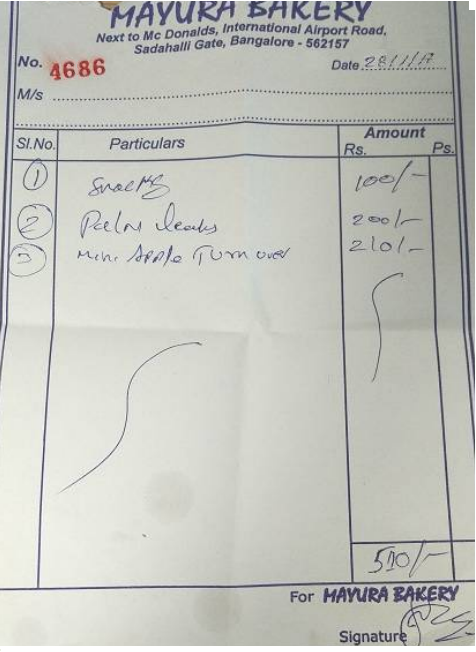 MAYURA BAKERY
Next to Mc Donalds, International Airport Road,
Sadahalli Gate, Bangalore - 562157
No. 4686
Date 28/1/17
M/s
Sl.No. Particulars Amount
Rs. Ps.
1 100/-
2 Palm 200/-
3 Mini Apple Turn over 210/-
510/-
For MAYURA BAKERY
Signature